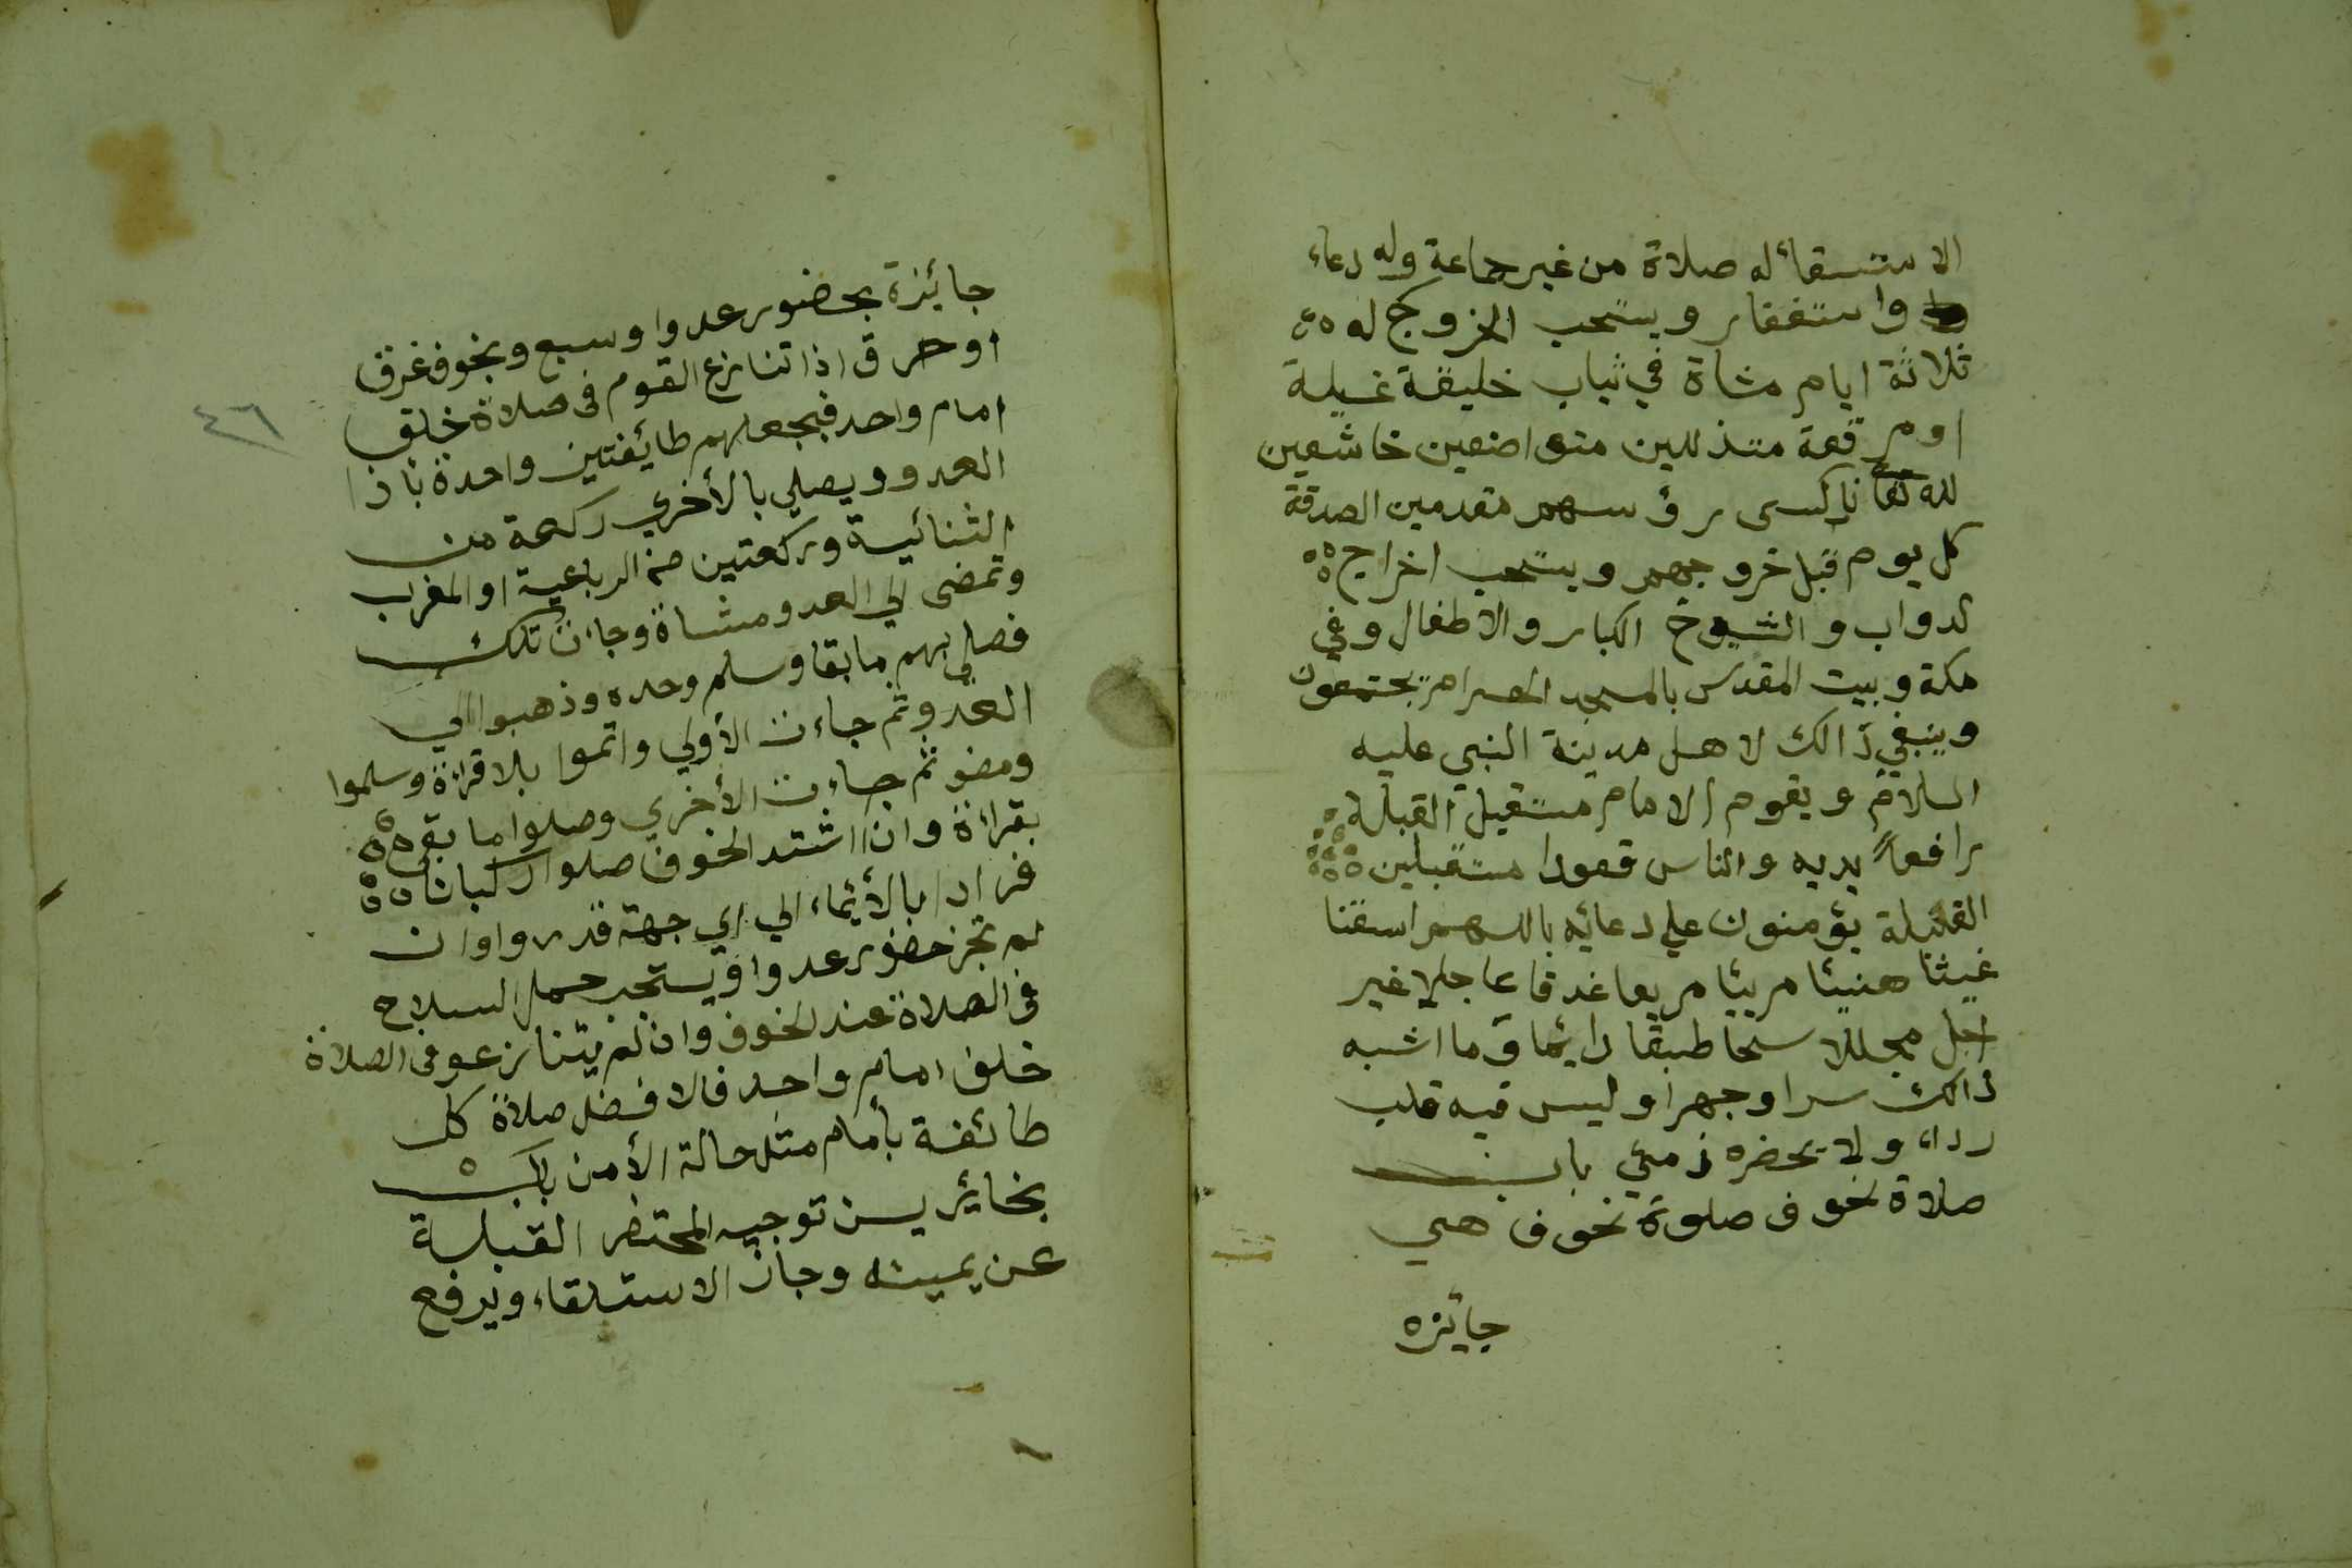 الاستسقائله صلاة من غير جماعة وله دعاء
واستغفار ويستحب الخروج له
ثلاثة ايام مشاة في ثياب خليقة غسيلة
او مرقعة متذللين متواضعين خاشعين
لله تعا ناكسى رؤسهم مقدمين الصدقة
كل يوم قبل خروجهم ويستحب اخراج
الدواب والشيوخ الكبار والاطفال وفي
مكة وبيت المقدس بالمسجد الحرام يجتمعون
وينبغي ذالك لاهل مدينة النبي عليه
السلام ويقوم الامام مستقبل القبلة
رافعاً يديه والناس قعودا مستقبلين
القبلة يؤمنون علي دعائه باللهم اسقنا
غيثا هنيئا مريئا مريعا غدقا عاجلا غير
اجل مجللا سحا طبقا دايئما وما اشبه
ذالك سرا وجهرا وليس فيه قلب
رداء ولا يحضره ذمي باب
صلاة لخوف صلوة لخوف هي
جايزه
جايئزة بحضور عدوا وسبع وبخوف غرق
اوحرق اذا تنازع القوم فى صلاة خلف
امام واحد فيجعلهم طايئفتين واحدة باذا
العدو ويصلي بالأخري ركعة من
الثنائية وركعتين من الرباعية او المغرب
وتمضى الي العدو مشاة وجاءت تلك
فصلي بهم ما بقا وسلم وحده وذهبوا الي
العدو ثم جاءت الأولي واتموا بلا قراءة وسلموا
ومضو ثم جاءت الأخري وصلوا ما بقي
بقراءة وان اشتد الخوف صلوا ركبانا
فرادا بالأيئماء الي اي جهة قدروا وان
لم تجز حضور عدوا ويستحب حمل السلاح
فى الصلاة عند لخوف وان لم يتنازعو فى الصلاة
خلف امام واحد فالافضل صلاة كل
طائفة بأمام مثل حالة الأمن باب
بخائز يسن توجيه المحتضر القبلة
عن يمينه وجاز الاستلقاء ويرفع
٤٦